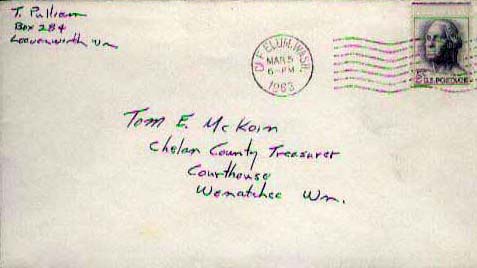 T. Pulliam
Box 284
Leavenworth Wn
CLE ELUM, WASH.
MAR 5
6-PM
1963
5¢ U.S. POSTAGE
Tom E. McKoin
Chelan County Treasurer
Courthouse
Wenatchee Wn.